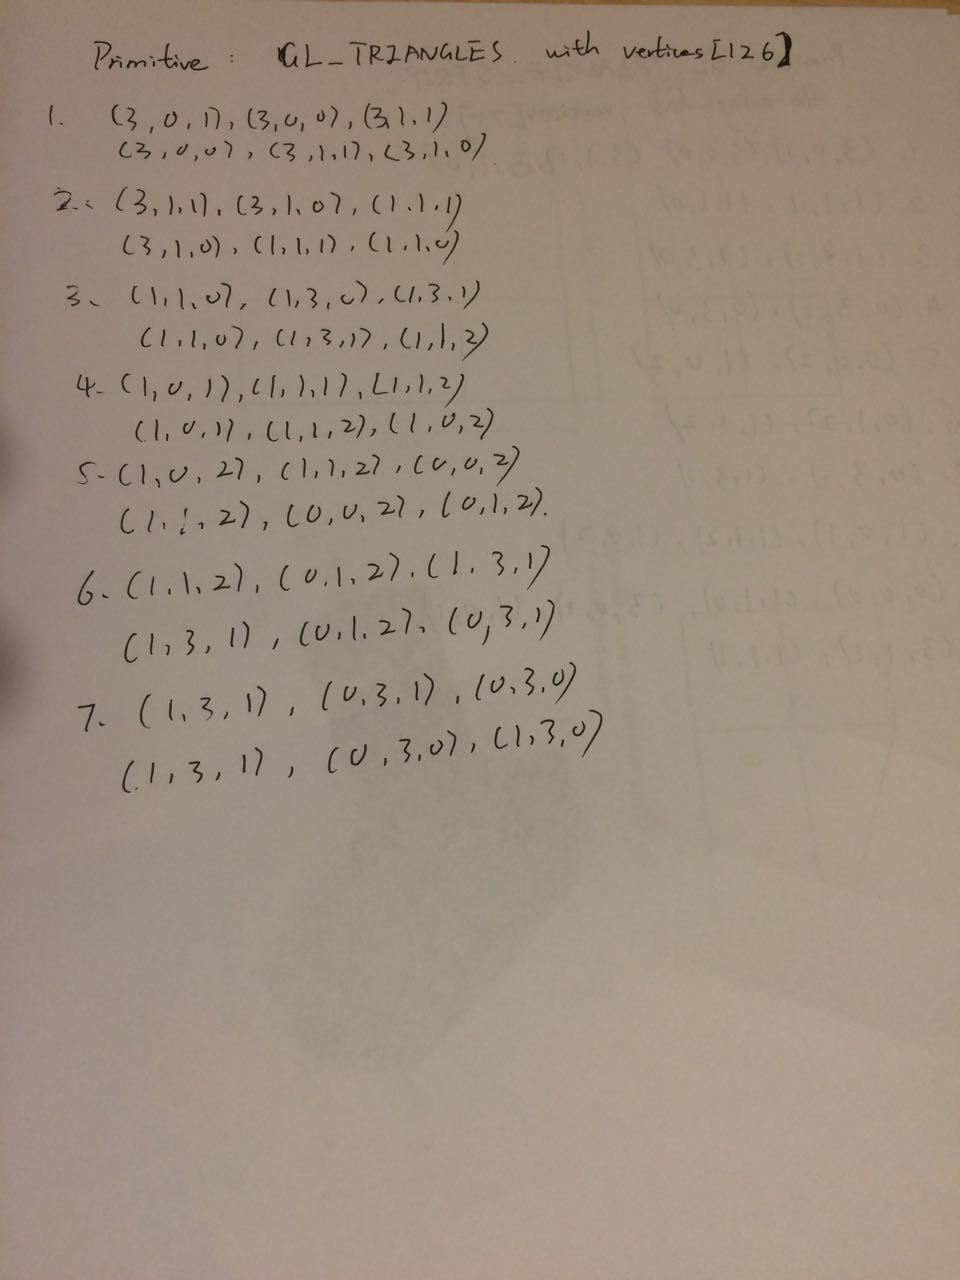 Primitive : GL_TRIANGLES with vertices[126]
1. (3,0,1), (3,0,0), (3,1,1)
(3,0,0), (3,1,1), (3,1,0)
2. (3,1,1), (3,1,0), (1,1,1)
(3,1,0), (1,1,1), (1,1,0)
3. (1,1,0), (1,3,0), (1,3,1)
(1,1,0), (1,3,1), (1,1,2)
4. (1,0,1), (1,1,1), (1,1,2)
(1,0,1), (1,1,2), (1,0,2)
5. (1,0,2), (1,1,2), (0,0,2)
(1,1,2), (0,0,2), (0,1,2).
6. (1,1,2), (0,1,2), (1,3,1)
(1,3,1), (0,1,2), (0,3,1)
7. (1,3,1), (0,3,1), (0,3,0)
(1,3,1), (0,3,0), (1,3,0)